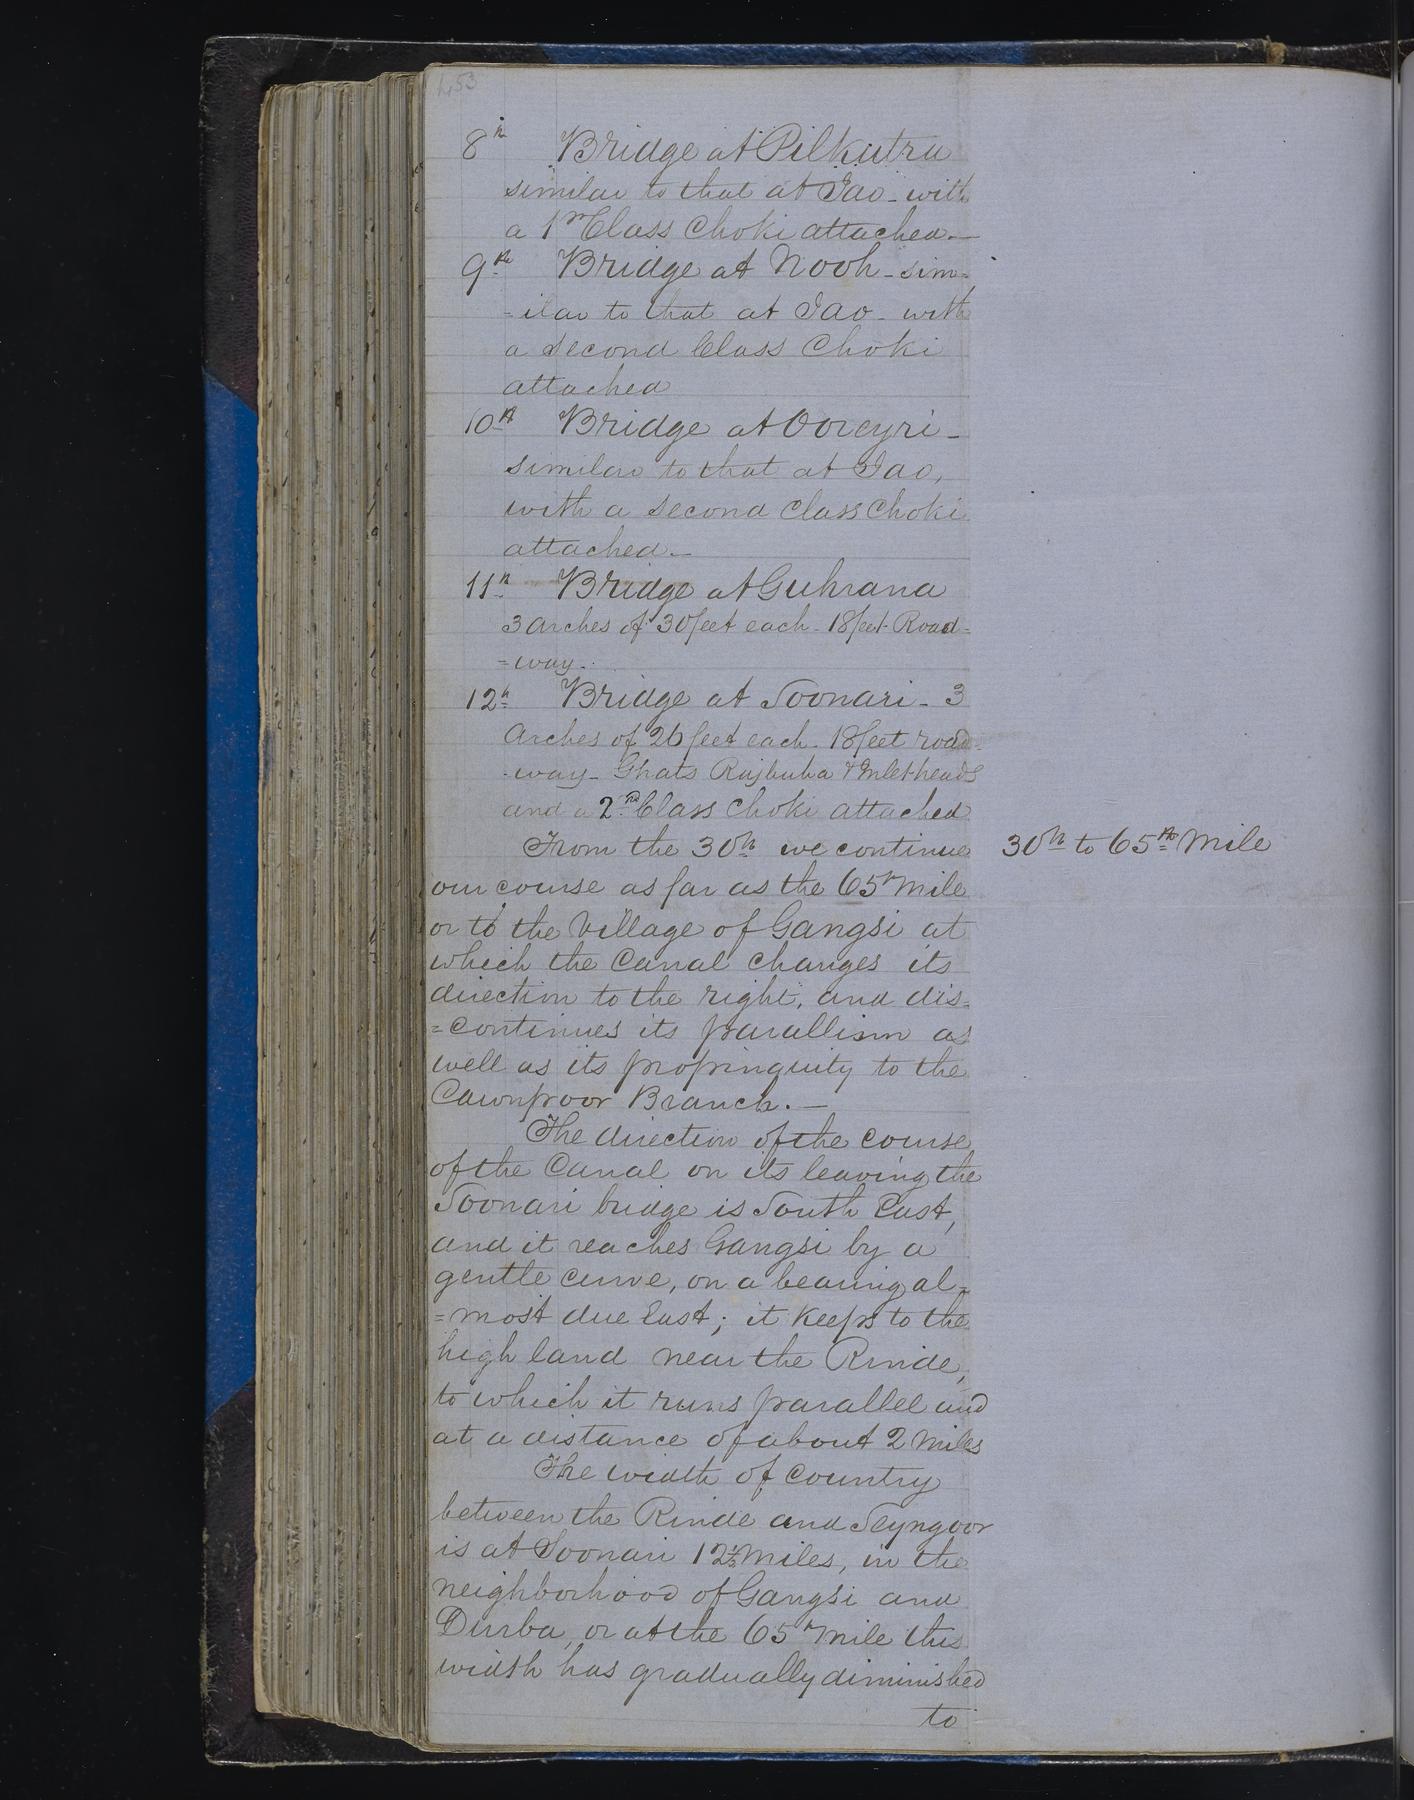 453
8th Bridge at Pilkutra
similar to that at Jao - with
a 1st Class Choki attached. —
9th Bridge at Nooh - sim=
- ilar to that at Jao - with
a Second Class Choki
attached
10th Bridge at Ooreyri -
similar to that at Jao,
with a Second Class Choki
attached. —
11th Bridge at Guhrana
3 arches of 30 feet each - 18 feet Road=
= way.
12th Bridge at Soonari - 3
Arches of 26 feet each - 18 feet road-
- way - Ghats Rajbuha & Inlet-heads
and a 2nd Class Choki attached
From the 30th we continue
30th to 65th Mile
our course as far as the 65th Mile
or to the Village of Gangsi at
which the Canal changes its
direction to the right, and dis=
= continues its parallism as
well as its propinquity to the
Cawnpoor Branch. —
The direction of the course
of the Canal on its leaving the
Soonari bridge is South East,
and it reaches Gangsi by a
gentle curve, on a bearing al=
= most due East; it keeps to the
high land near the Rinde,
to which it runs parallel and
at a distance of about 2 Miles
The width of Country
between the Rinde and Seyngoor
is at Soonari 12½ Miles, in the
neighborhood of Gangsi and
Durba, or at the 65th Mile this
width has gradually diminished
to